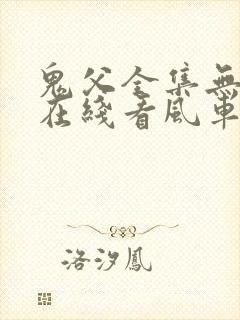 鬼父全集無
在綫看風車
洛汐鳳